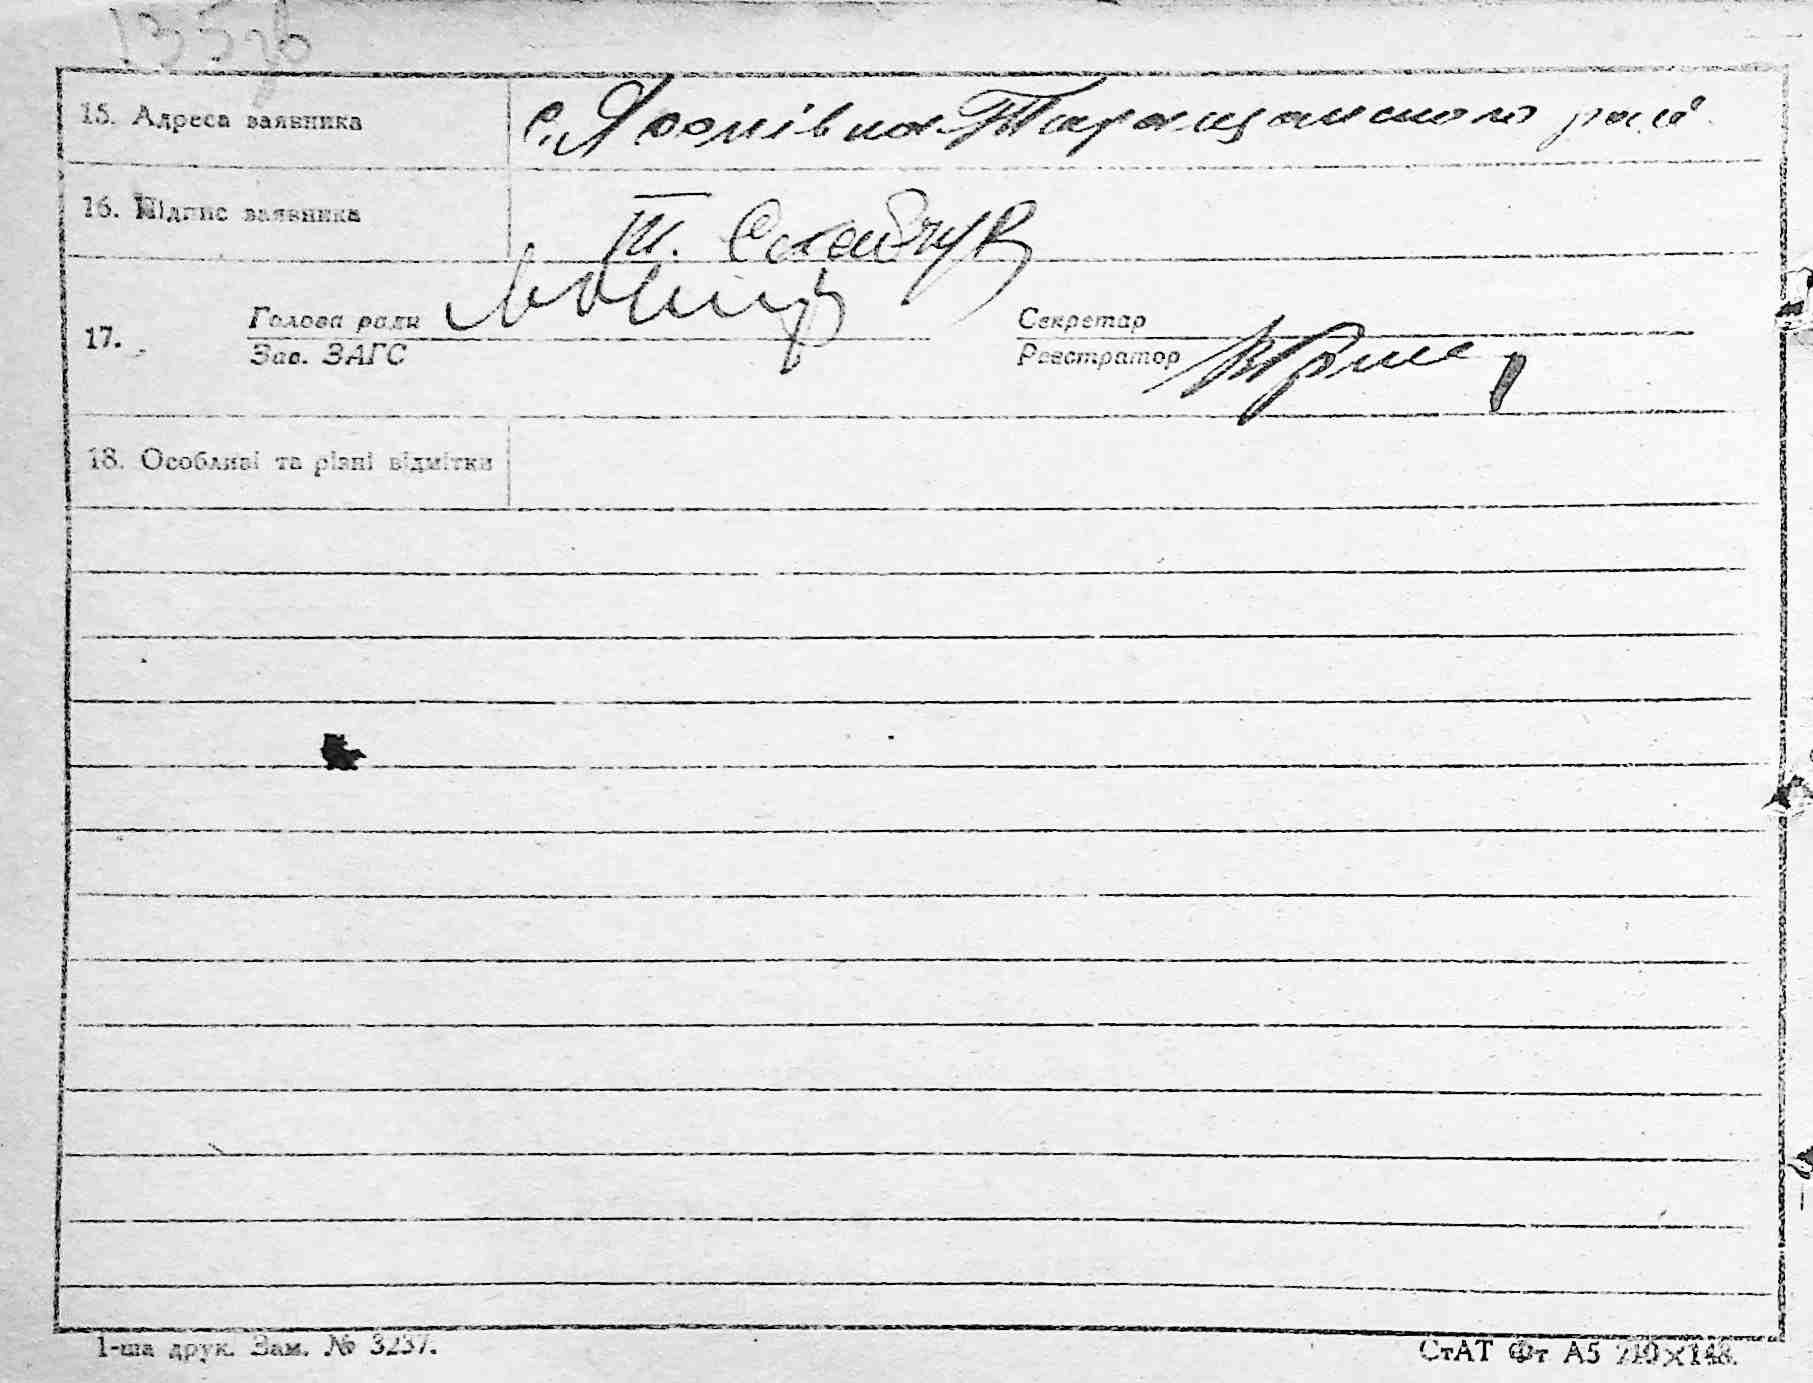 135зв
15. Адреса заявника с. Лоонівка Таращанського рай.
16. Підпис заявника Т. Скабчук
17. Голова ради Секретар
Зав. ЗАГС Реєстратор
18. Особливі та різні відмітки
1-ша друк. Зам. № 3237.
СтАТ Фт А5 210×148.